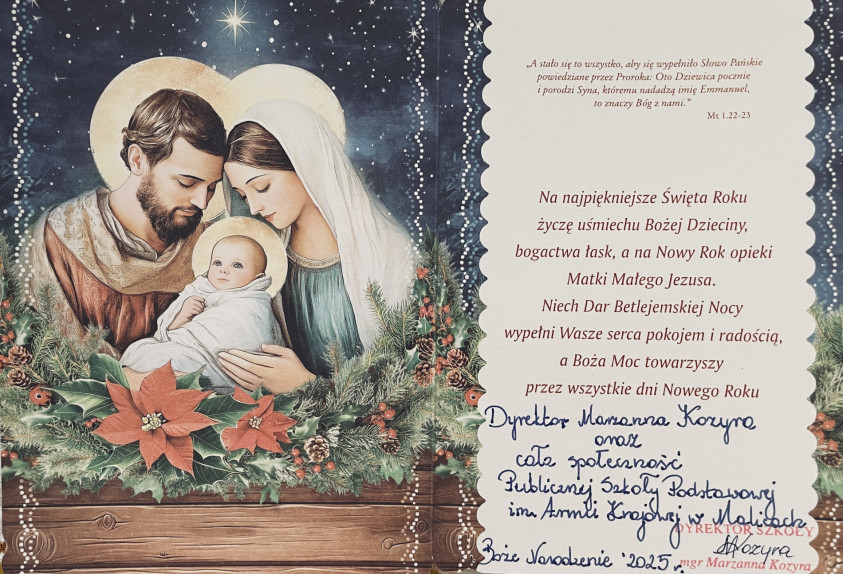 „A stało się to wszystko, aby się wypełniło Słowo Pańskie
powiedziane przez Proroka: Oto Dziewica pocznie
i porodzi Syna, któremu nadadzą imię Emmanuel,
to znaczy Bóg z nami.”
Mt 1.22-23
Na najpiękniejsze Święta Roku
życzę uśmiechu Bożej Dzieciny,
bogactwa łask, a na Nowy Rok opieki
Matki Małego Jezusa.
Niech Dar Betlejemskiej Nocy
wypełni Wasze serca pokojem i radością,
a Boża Moc towarzyszy
przez wszystkie dni Nowego Roku
Dyrektor Marzanna Kozyra
oraz
cała społeczność
Publicznej Szkoły Podstawowej
im. Armii Krajowej w Malicach
DYREKTOR SZKOŁY
MKozyra
mgr Marzanna Kozyra
Boże Narodzenie '2025 r.